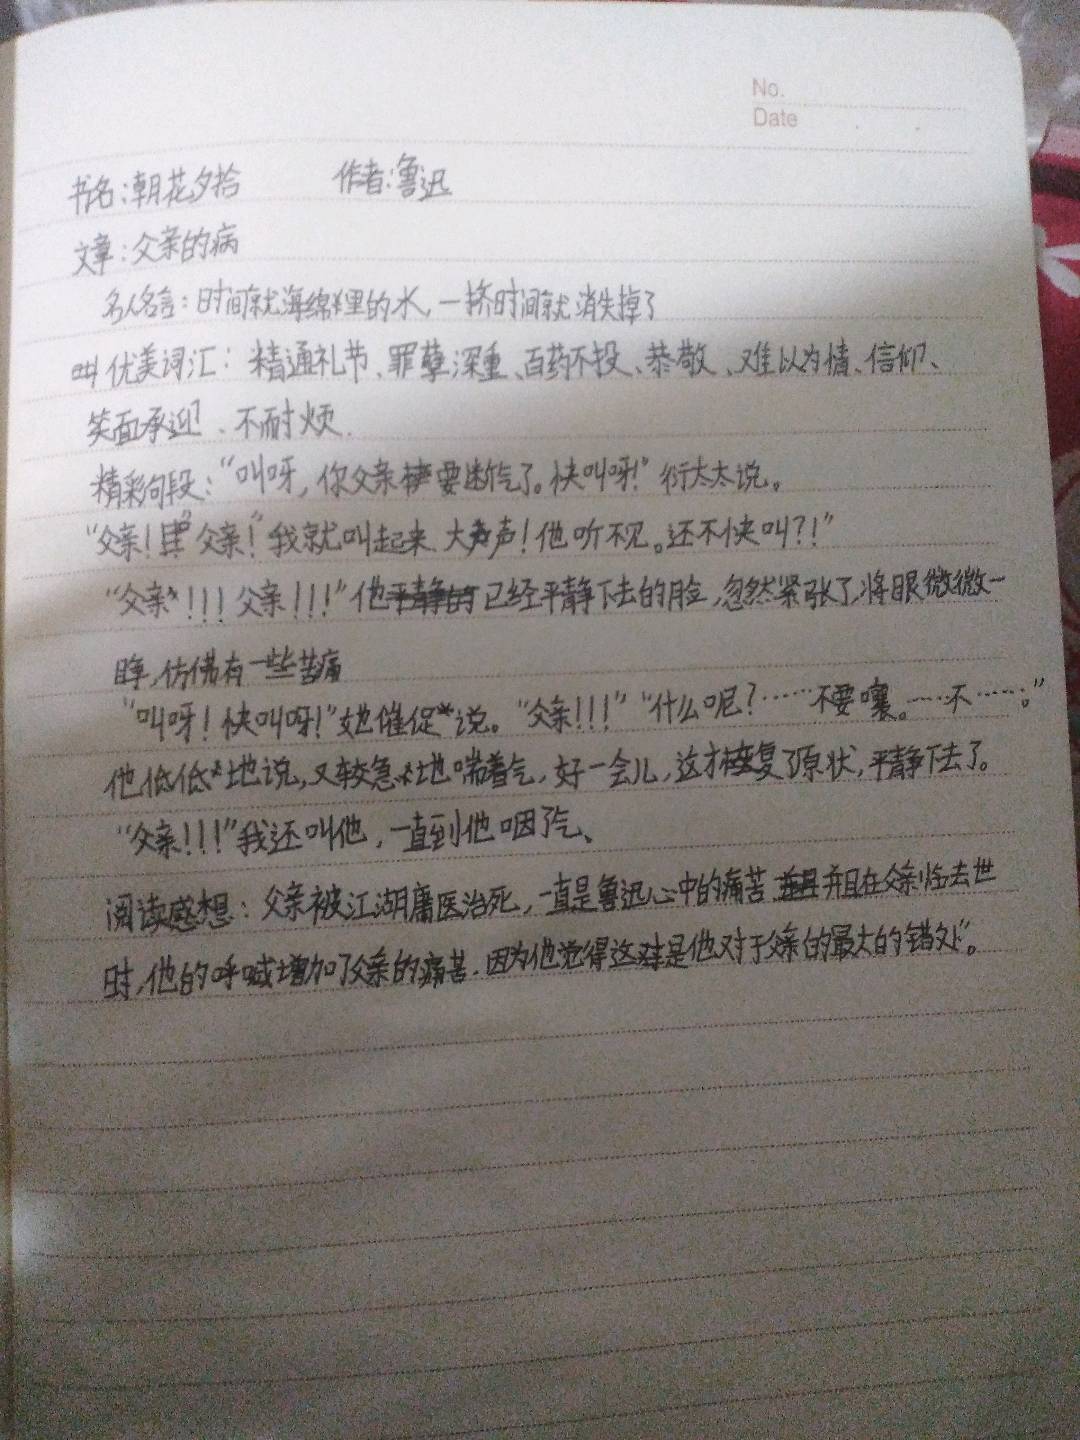 No.
Date
书名:朝花夕拾 作者:鲁迅
文章:父亲的病
名人名言:时间就海绵里的水,一挤时间就消失掉了
叫优美词汇:精通礼节、罪孽深重、百药不投、恭敬、难以为情、信仰、
笑面承迎、不耐烦.
精彩句段:“叫呀,你父亲要断气了。快叫呀!”衍太太说。
“父亲!”父亲!”我就叫起来 大声!他听不见。还不快叫?!”
“父亲!!!父亲!!!”他已经平静下去的脸,忽然紧张了,将眼微微一
睁,仿佛有一些苦痛
“叫呀!快叫呀!”她催促说。“父亲!!!”“什么呢?……不要嚷。……不……。”
他低低地说,又较急地喘着气,好一会儿,这才复了原状,平静下去了。
“父亲!!!”我还叫他,一直到他咽了气、
阅读感想:父亲被江湖庸医治死,一直是鲁迅心中的痛苦 并且在父亲临去世
时,他的呼喊增加了父亲的痛苦.因为他觉得这是他对于父亲的最大的错处”。